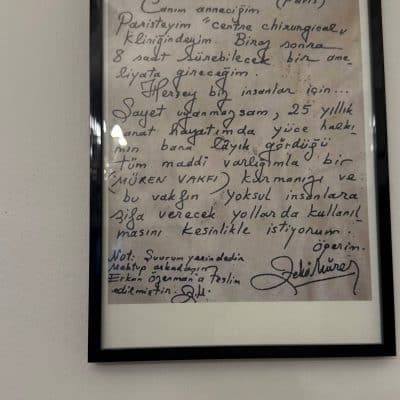 Canım anneciğim (Paris)
Paristeyim "centre chirurgical"
Kliniğindeyim. Biraz sonra
8 saat sürebilecek bir ame-
liyata gireceğim.
Herşey biz insanlar için...
Şayet uyanmazsam, 25 yıllık
sanat hayatımda yüce halkı-
mın bana lâyık gördüğü
tüm maddi varlığımla bir
(MÜREN VAKFI) kurmanızı ve
bu vakfın yoksul insanlara
şifa verecek yollarda kullanıl-
masını kesinlikle istiyorum.
öperim.
Not: Şuurum yerindedir
Mektup arkadaşım
Erkan Özerman'a teslim
edilmiştir. Z.M.
Zeki Müren